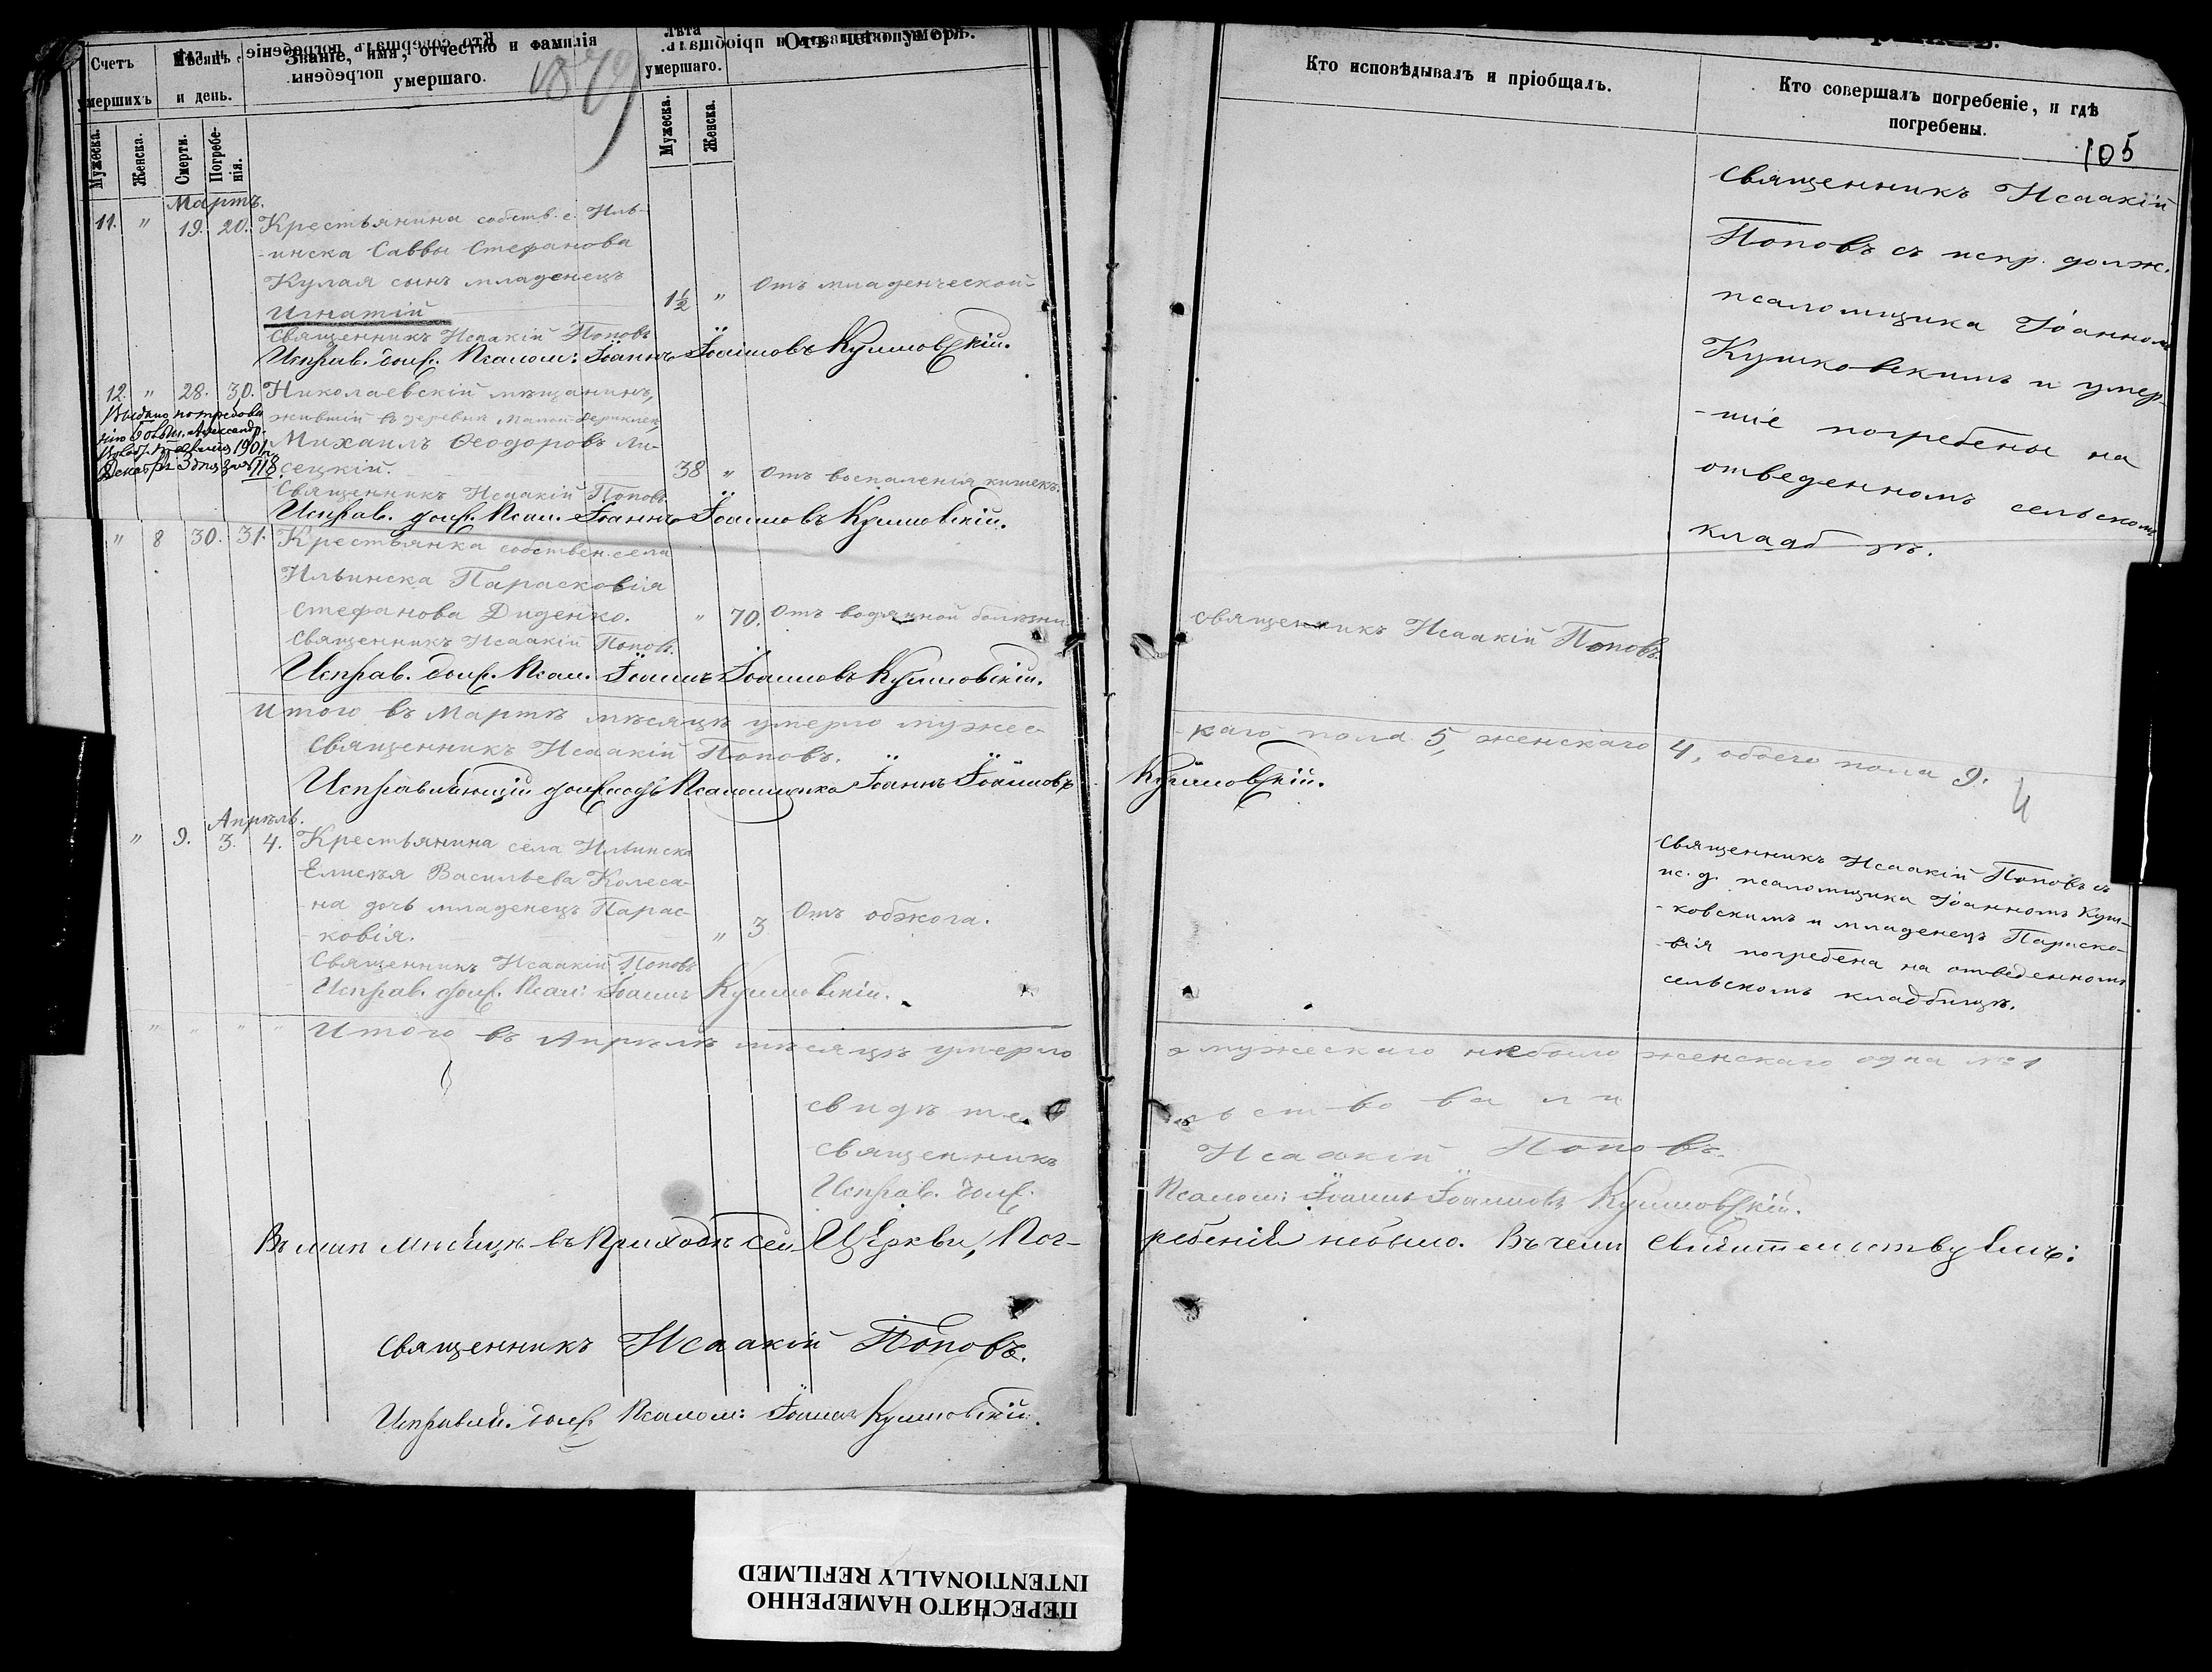 Счетъ умершихъ
Мѣсяцъ и день.
Званіе, имя, отчество и фамилія умершаго.
1879
Лѣта умершаго.
Отъ чего умеръ.
Мужеска.
Женска.
Смерти.
Погребенія.
Мужеска.
Женска.
Мартъ.
11. " 19. 20. Крестьянина собств. с. Иль-
-инска Саввы Стефанова
Кулая сынъ младенецъ
Игнатій 1½ " Отъ младенческой
Священникъ Исаакій Поповъ
Исправ. долж. Псалом: Іоаннъ Іоанновъ
12. " 28. 30. Николаевскій мѣщанинъ,
жившій въ деревнѣ Малой
Михаилъ Ѳеодоровъ Ли-
сецкій. 38 " Отъ воспаленія кишекъ.
Выдано по требова
нію
1901 г.
Декабря 3 дня за № 118
Священникъ Исаакій Поповъ
Исправ. долж. Псал. Іоаннъ Іоанновъ
" 8 30. 31. Крестьянка собствен. села
Ильинска Парасковія
Стефанова Диденко. " 70. Отъ водянной болѣзни
Священникъ Исаакій Поповъ.
Исправ. долж. Псал. Іоаннъ Іоанновъ
Итого въ Мартѣ мѣсяцѣ умерло мужес-
Священникъ Исаакій Поповъ.
Исправляющій должность Псаломщика Іоаннъ Іоанновъ
Апрѣль.
" 9. 3. 4. Крестьянина села Ильинска
Елисѣя Васильева Колеса-
-на дочь младенецъ Парас-
-ковія. " 3 Отъ обжога.
Священникъ Исаакій Поповъ
Исправ. долж. Псал: Іоаннъ
" " " " Итого въ Апрѣлѣ мѣсяцѣ умерло
свидѣте
Священникъ
Исправ. долж.
Въ маѣ мѣсяцѣ въ Приходѣ сей Церкви, Пог-
Священникъ Исаакій Поповъ.
Исправляй. долж. Псалом: Іоаннъ
Кто исповѣдывалъ и пріобщалъ.
Кто совершалъ погребеніе, и гдѣ
погребены.
105
Священникъ Исаакій
Поповъ съ испр. долж.
псаломщика Іоанномъ
Кушковскимъ и умер-
-шіе погребены на
отведенномъ сельскомъ
кладб щѣ.
Священникъ Исаакій Поповъ.
каго пола 5, женскаго 4, обоего пола 9.
Священникъ Исаакій Поповъ съ
ис. д. псаломщика Іоанномъ Куш-
-ковскимъ и младенецъ Параско-
-вія погребена на отведенномъ
сельскомъ кладбищѣ.
мужескаго небыло женскаго одна № 1
льствовали
Исаакій Поповъ.
Псалом: Іоаннъ Іоанновъ
ребеній небыло. Въ чемъ свидѣтельствуемъ:
ПЕРЕСНЯТО НАМЕРЕННО
INTENTIONALLY REFILMED